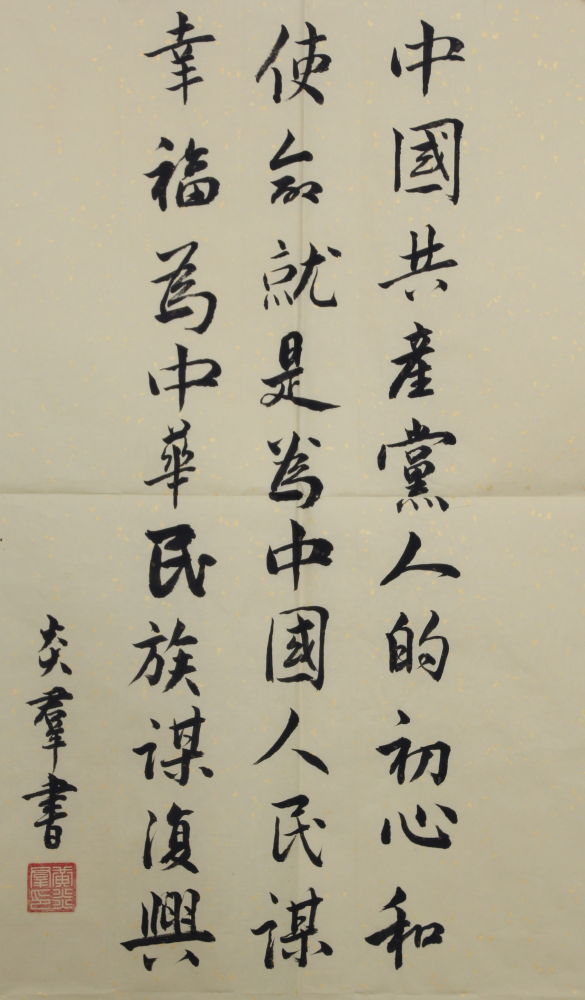 中國共產黨人的初心和
使命就是為中國人民謀
幸福為中華民族謀復興
炎羣書